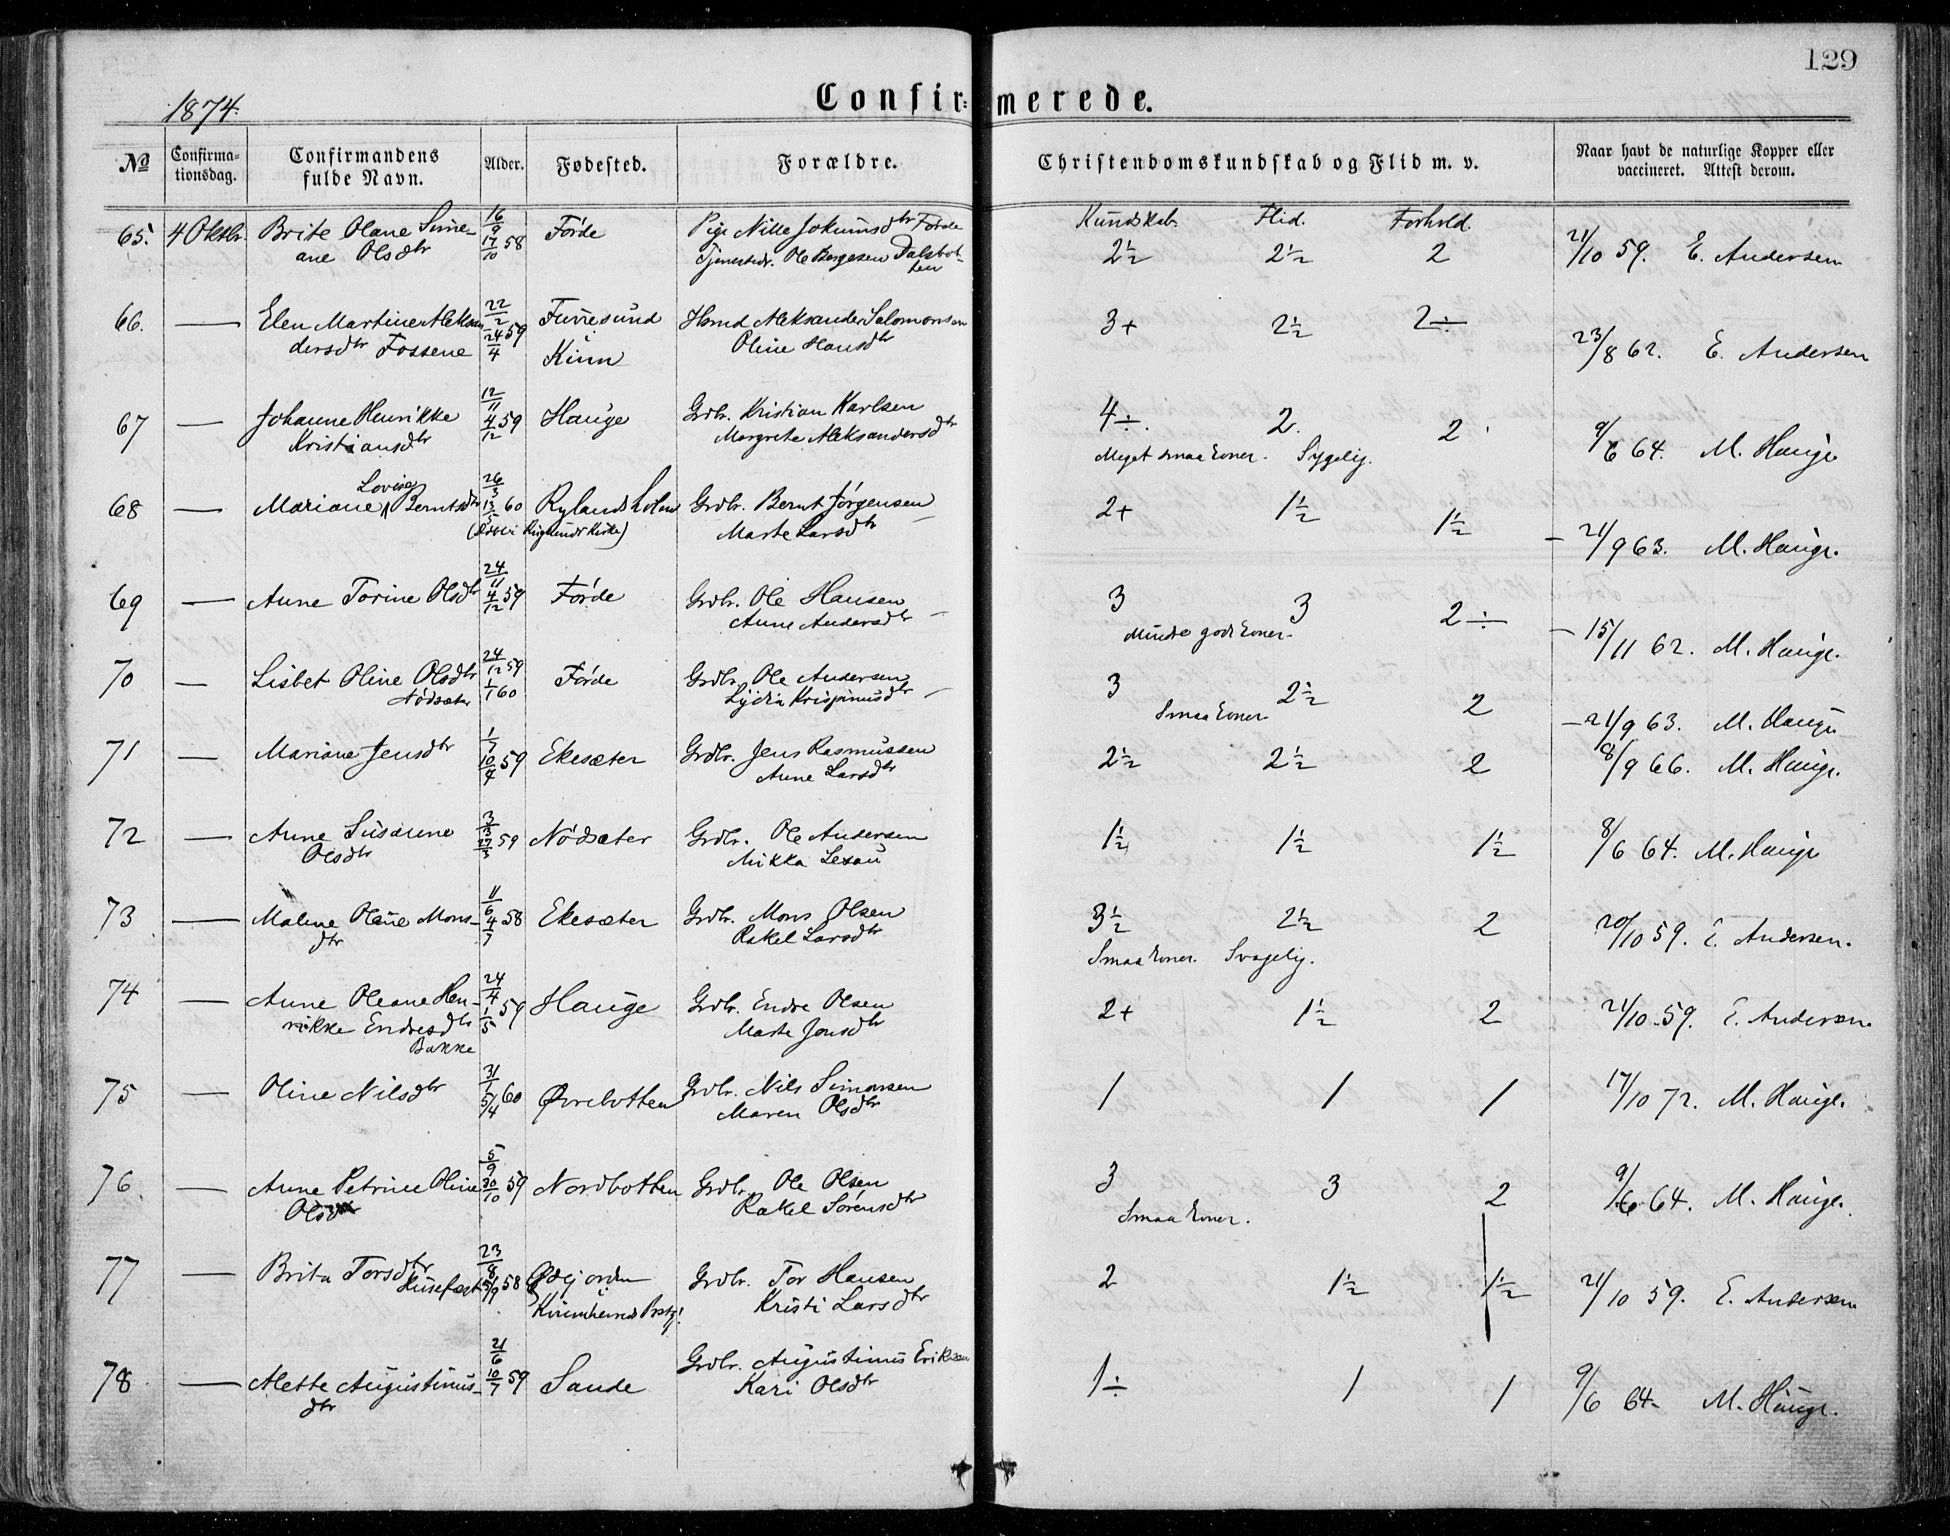 129
1874.
Confir= merede.
№ Confirma=tionsdag. Confirmandens fulde Navn. Alder. Fødested. Forældre. Christendomskundskab og Flid m. v. Naar havt de naturlige Kopper eller vaccineret. Attest derom.
Kundskab. Flid. Forhold.
65. 4 Oktbr. Brite Oline 16/9 17/10 58 Førde Pige Nille Jokumsdtr Førde 2½ 2½ 2 21/10 59. E. Andersen
ane Olsdtr Ole Børgesen Dalsbotten
66. — Elen Martine Aleksan 22/2 24/4 59 Furresund Hsmd Aleksander Salomonsen 3+ 2½ 2÷ 23/8 62. E. Andersen
dersdtr Fossene Kinn Oline Hansdtr
67 — Johanne Henrikke 12/11 4/12 59 Hauge Grdbr. Kristian Karlsen 4÷. 2. 2 9/6 64. M. Hauge
Kristiansdtr Margrete Aleksandersdtr Meget smaa Evner. Sygelig.
Lovise
68 — Mariane Berntsdtr 26/3 13/5 60 Rylandsholm Grdbr. Bernt Jørgensen 2+ 1½ 1½ 21/9 63. M. Hauge.
Kirke) Marte Larsdtr
69 — Anne Torine Olsdtr 24/11 4/12 59 Førde Grdbr. Ole Hansen 3 3 2÷ 15/11 62. M. Hauge.
Anne Andersdtr Mindre gode Evner.
70 — Lisbet Oline Olsdtr 24/12 59 1/1 60 Førde Grdbr. Ole Andersen 3 2½ 2 21/9 63. M. Hauge
Nødsæter Lydia Krispinusdtr Smaa Evner.
71 — Mariane Jensdtr 1/7 10/4 59 Ekesæter Grdbr. Jens Rasmussen 2½ 2½ 2 8/9 66. M. Hauge.
Anne Larsdtr
72 — Anne Susanne 3/3 27/3 59 Nødsæter Grdbr. Ole Andersen 1½ 1½ 1½ 8/6 64. M. Hauge
Olsdtr Mikka Lexau
73 — Malene Olene Mons- 11/6 4/7 58 Ekesæter Grdbr. Mons Olsen 3½ 2½ 2 20/10 59. E. Andersen.
dtr Rakel Larsdtr Smaa Evner. Svagelig.
74 — Anne Oleane Hen- 24/4 1/5 59 Hauge Grdbr. Endre Olsen 2+ 1½ 2 21/10 59. E. Andersen
rikke Endresdtr Marte Jonsdtr
Bakke
75 — Oline Nilsdtr 31/1 5/4 60 Øvrebotten Grdbr. Nils Simonsen 1 1 1 17/10 72. M. Hauge.
Maren Olsdtr
76. — Anne Petrine Oline 5/9 30/10 59 Nordbotten Grdbr. Ole Olsen 3 3 2 9/6 64. M. Hauge.
Olsdtr Rakel Sørensdtr Smaa Evner.
77 — Brita Torsdtr 23/8 5/9 58 Grdbr. Tor Hansen 2 1½ 1½ 21/10 59. E. Andersen
Husefæst Kristi Larsdtr
78 — Alette Augustinus- 21/6 10/7 59 Sande Grdbr. Augustinus Eriksen 1÷ 1 1 9/6 64. M. Hauge.
dtr Kari Olsdtr